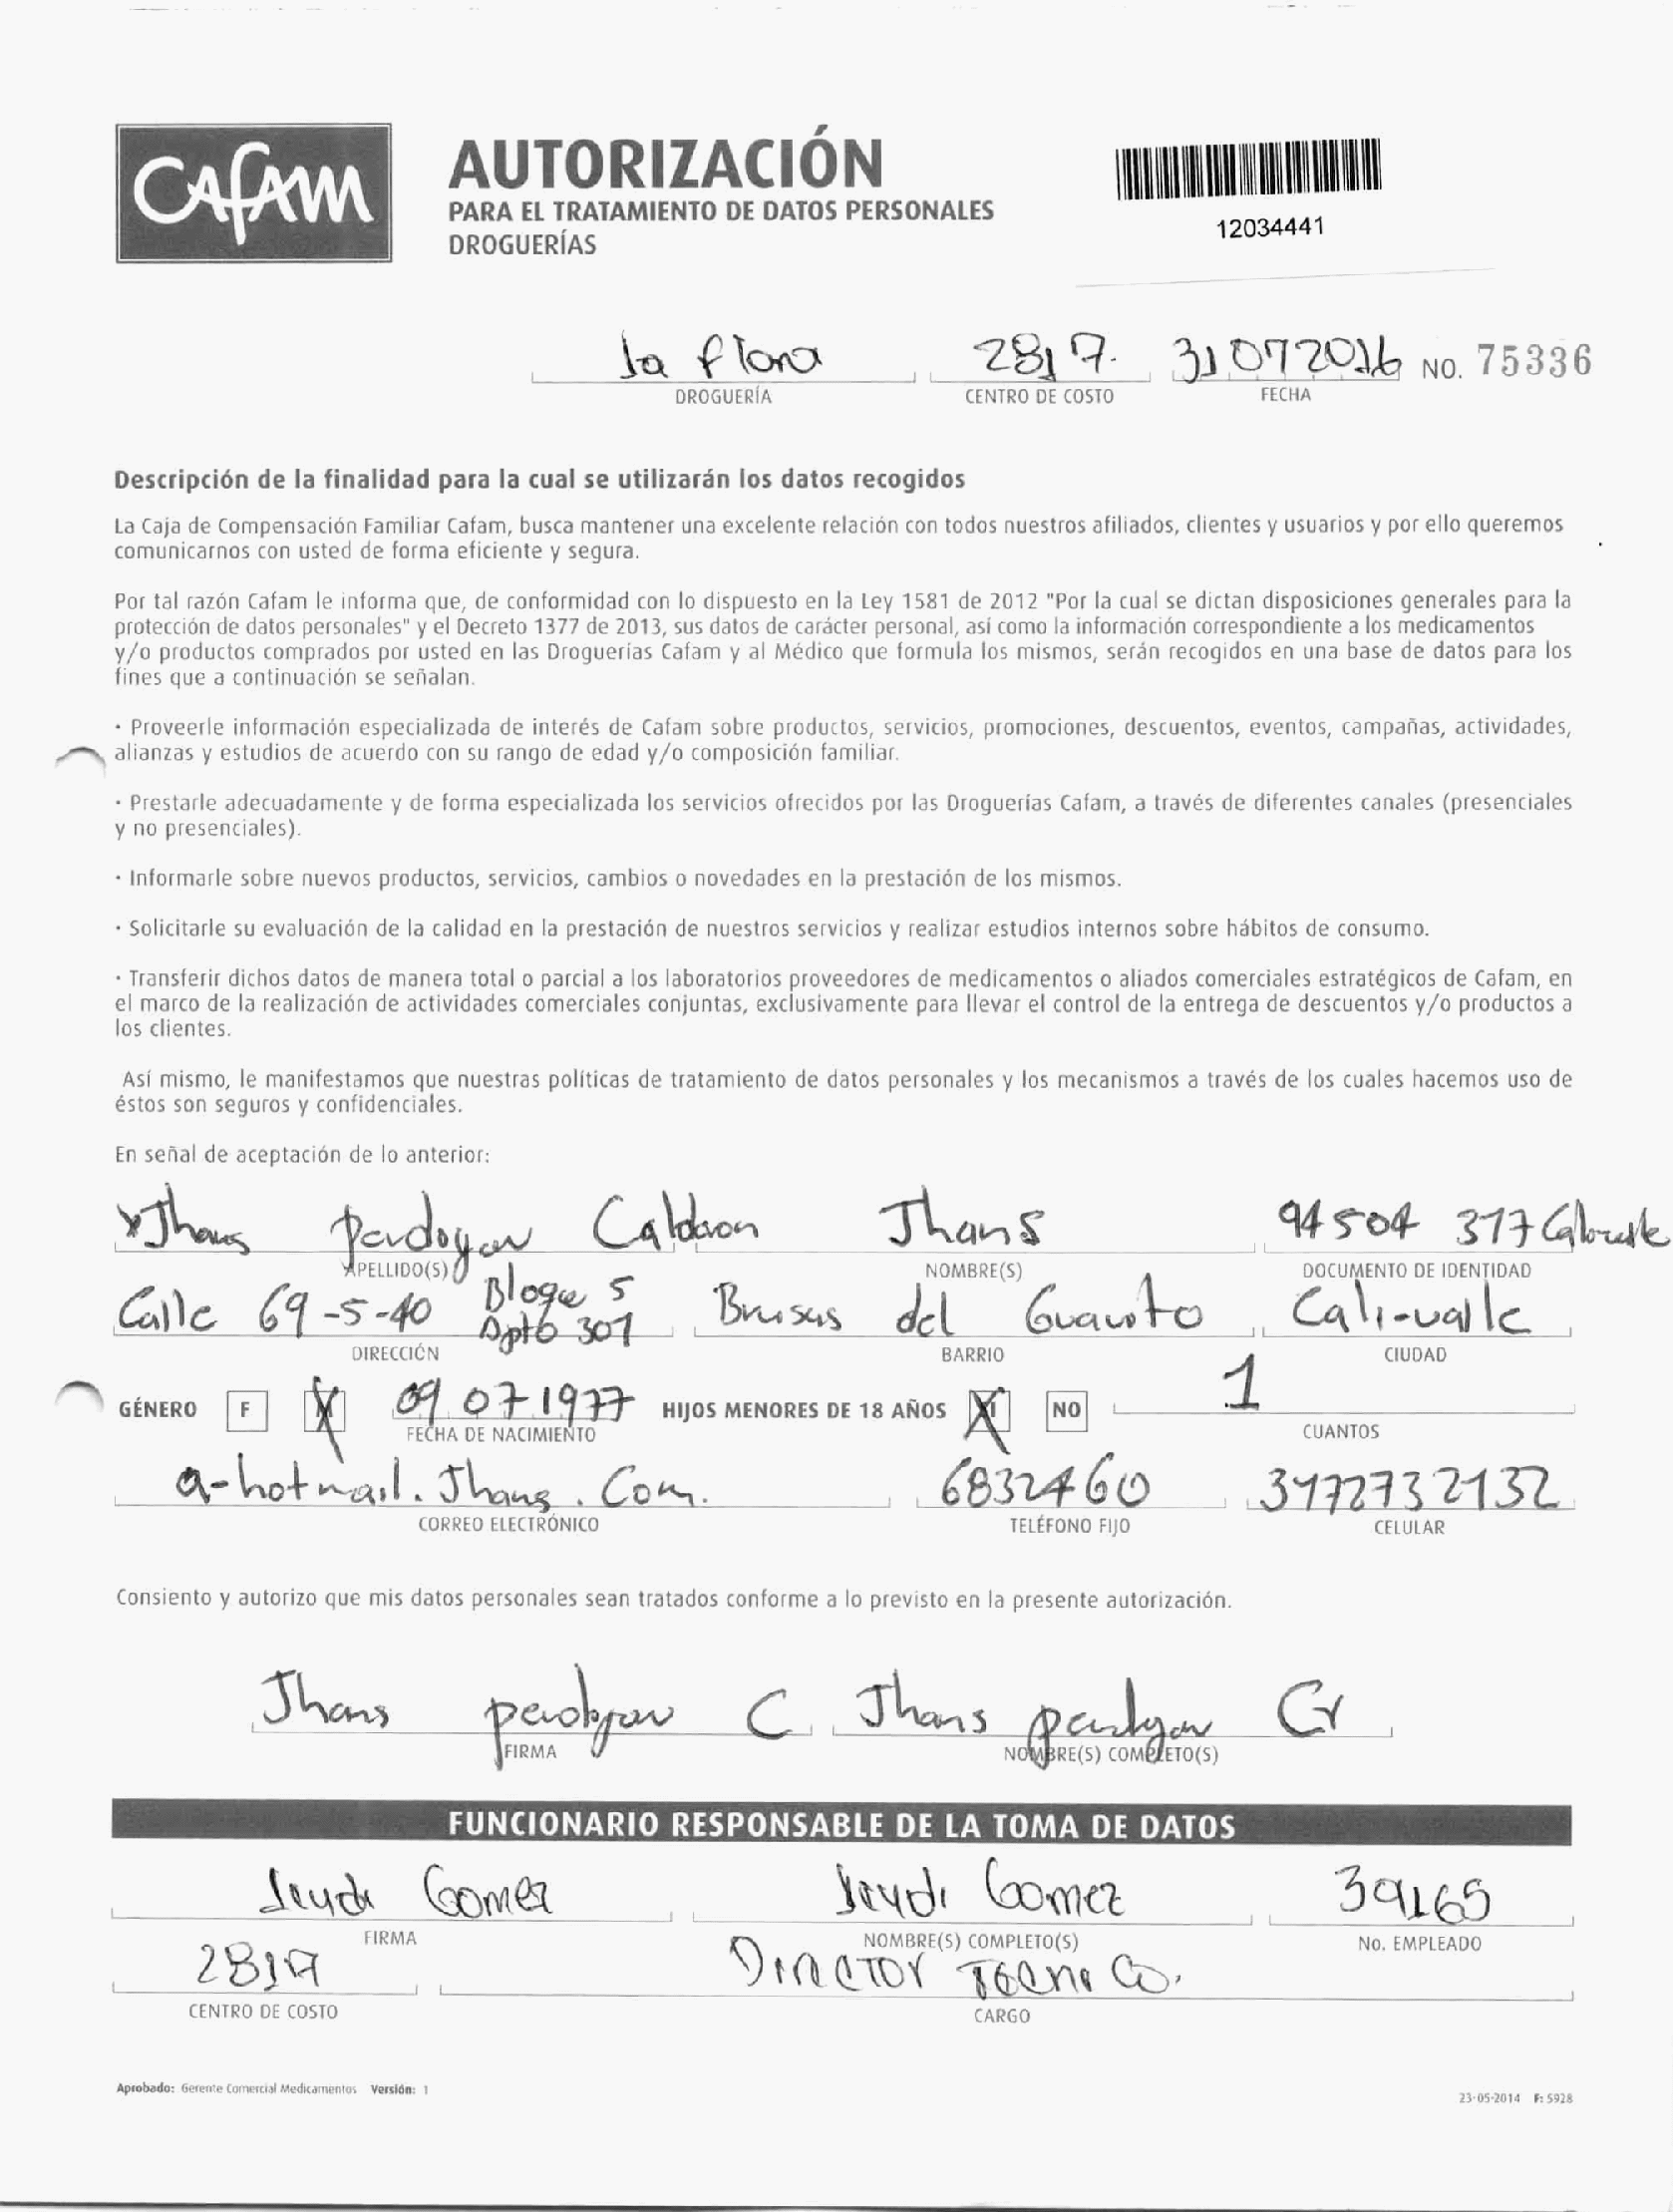 CAFAM
AUTORIZACIÓN
PARA EL TRATAMIENTO DE DATOS PERSONALES
DROGUERÍAS
12034441
la flora 2817 31 07 2016 NO. 75336
DROGUERÍA CENTRO DE COSTO FECHA
Descripción de la finalidad para la cual se utilizarán los datos recogidos
La Caja de Compensación Familiar Cafam, busca mantener una excelente relación con todos nuestros afiliados, clientes y usuarios y por ello queremos
comunicarnos con usted de forma eficiente y segura.
Por tal razón Cafam le informa que, de conformidad con lo dispuesto en la Ley 1581 de 2012 "Por la cual se dictan disposiciones generales para la
protección de datos personales" y el Decreto 1377 de 2013, sus datos de carácter personal, así como la información correspondiente a los medicamentos
y/o productos comprados por usted en las Droguerías Cafam y al Médico que formula los mismos, serán recogidos en una base de datos para los
fines que a continuación se señalan.
· Proveerle información especializada de interés de Cafam sobre productos, servicios, promociones, descuentos, eventos, campañas, actividades,
alianzas y estudios de acuerdo con su rango de edad y/o composición familiar.
· Prestarle adecuadamente y de forma especializada los servicios ofrecidos por las Droguerías Cafam, a través de diferentes canales (presenciales
y no presenciales).
· Informarle sobre nuevos productos, servicios, cambios o novedades en la prestación de los mismos.
· Solicitarle su evaluación de la calidad en la prestación de nuestros servicios y realizar estudios internos sobre hábitos de consumo.
· Transferir dichos datos de manera total o parcial a los laboratorios proveedores de medicamentos o aliados comerciales estratégicos de Cafam, en
el marco de la realización de actividades comerciales conjuntas, exclusivamente para llevar el control de la entrega de descuentos y/o productos a
los clientes.
Así mismo, le manifestamos que nuestras políticas de tratamiento de datos personales y los mecanismos a través de los cuales hacemos uso de
éstos son seguros y confidenciales.
En señal de aceptación de lo anterior:
Jhans Jhans 94504 317
APELLIDO(S) NOMBRE(S) DOCUMENTO DE IDENTIDAD
Calle 69-5-40 Bloque 5 Apto 301 Brisas del Cali-valle
DIRECCIÓN BARRIO CIUDAD
GÉNERO F M 09 07 1977 HIJOS MENORES DE 18 AÑOS SI NO 1
FECHA DE NACIMIENTO CUANTOS
a-hotmail. Jhans. Com. 6832460 3172732132
CORREO ELECTRÓNICO TELÉFONO FIJO CELULAR
Consiento y autorizo que mis datos personales sean tratados conforme a lo previsto en la presente autorización.
Jhans C Jhans
FIRMA NOMBRE(S) COMPLETO(S)
FUNCIONARIO RESPONSABLE DE LA TOMA DE DATOS
Gomez Gomez 39165
FIRMA NOMBRE(S) COMPLETO(S) No. EMPLEADO
2817 Director Tecnico.
CENTRO DE COSTO CARGO
Aprobado: Gerente Comercial Medicamentos Versión: 1
23-05-2014 F: 5928